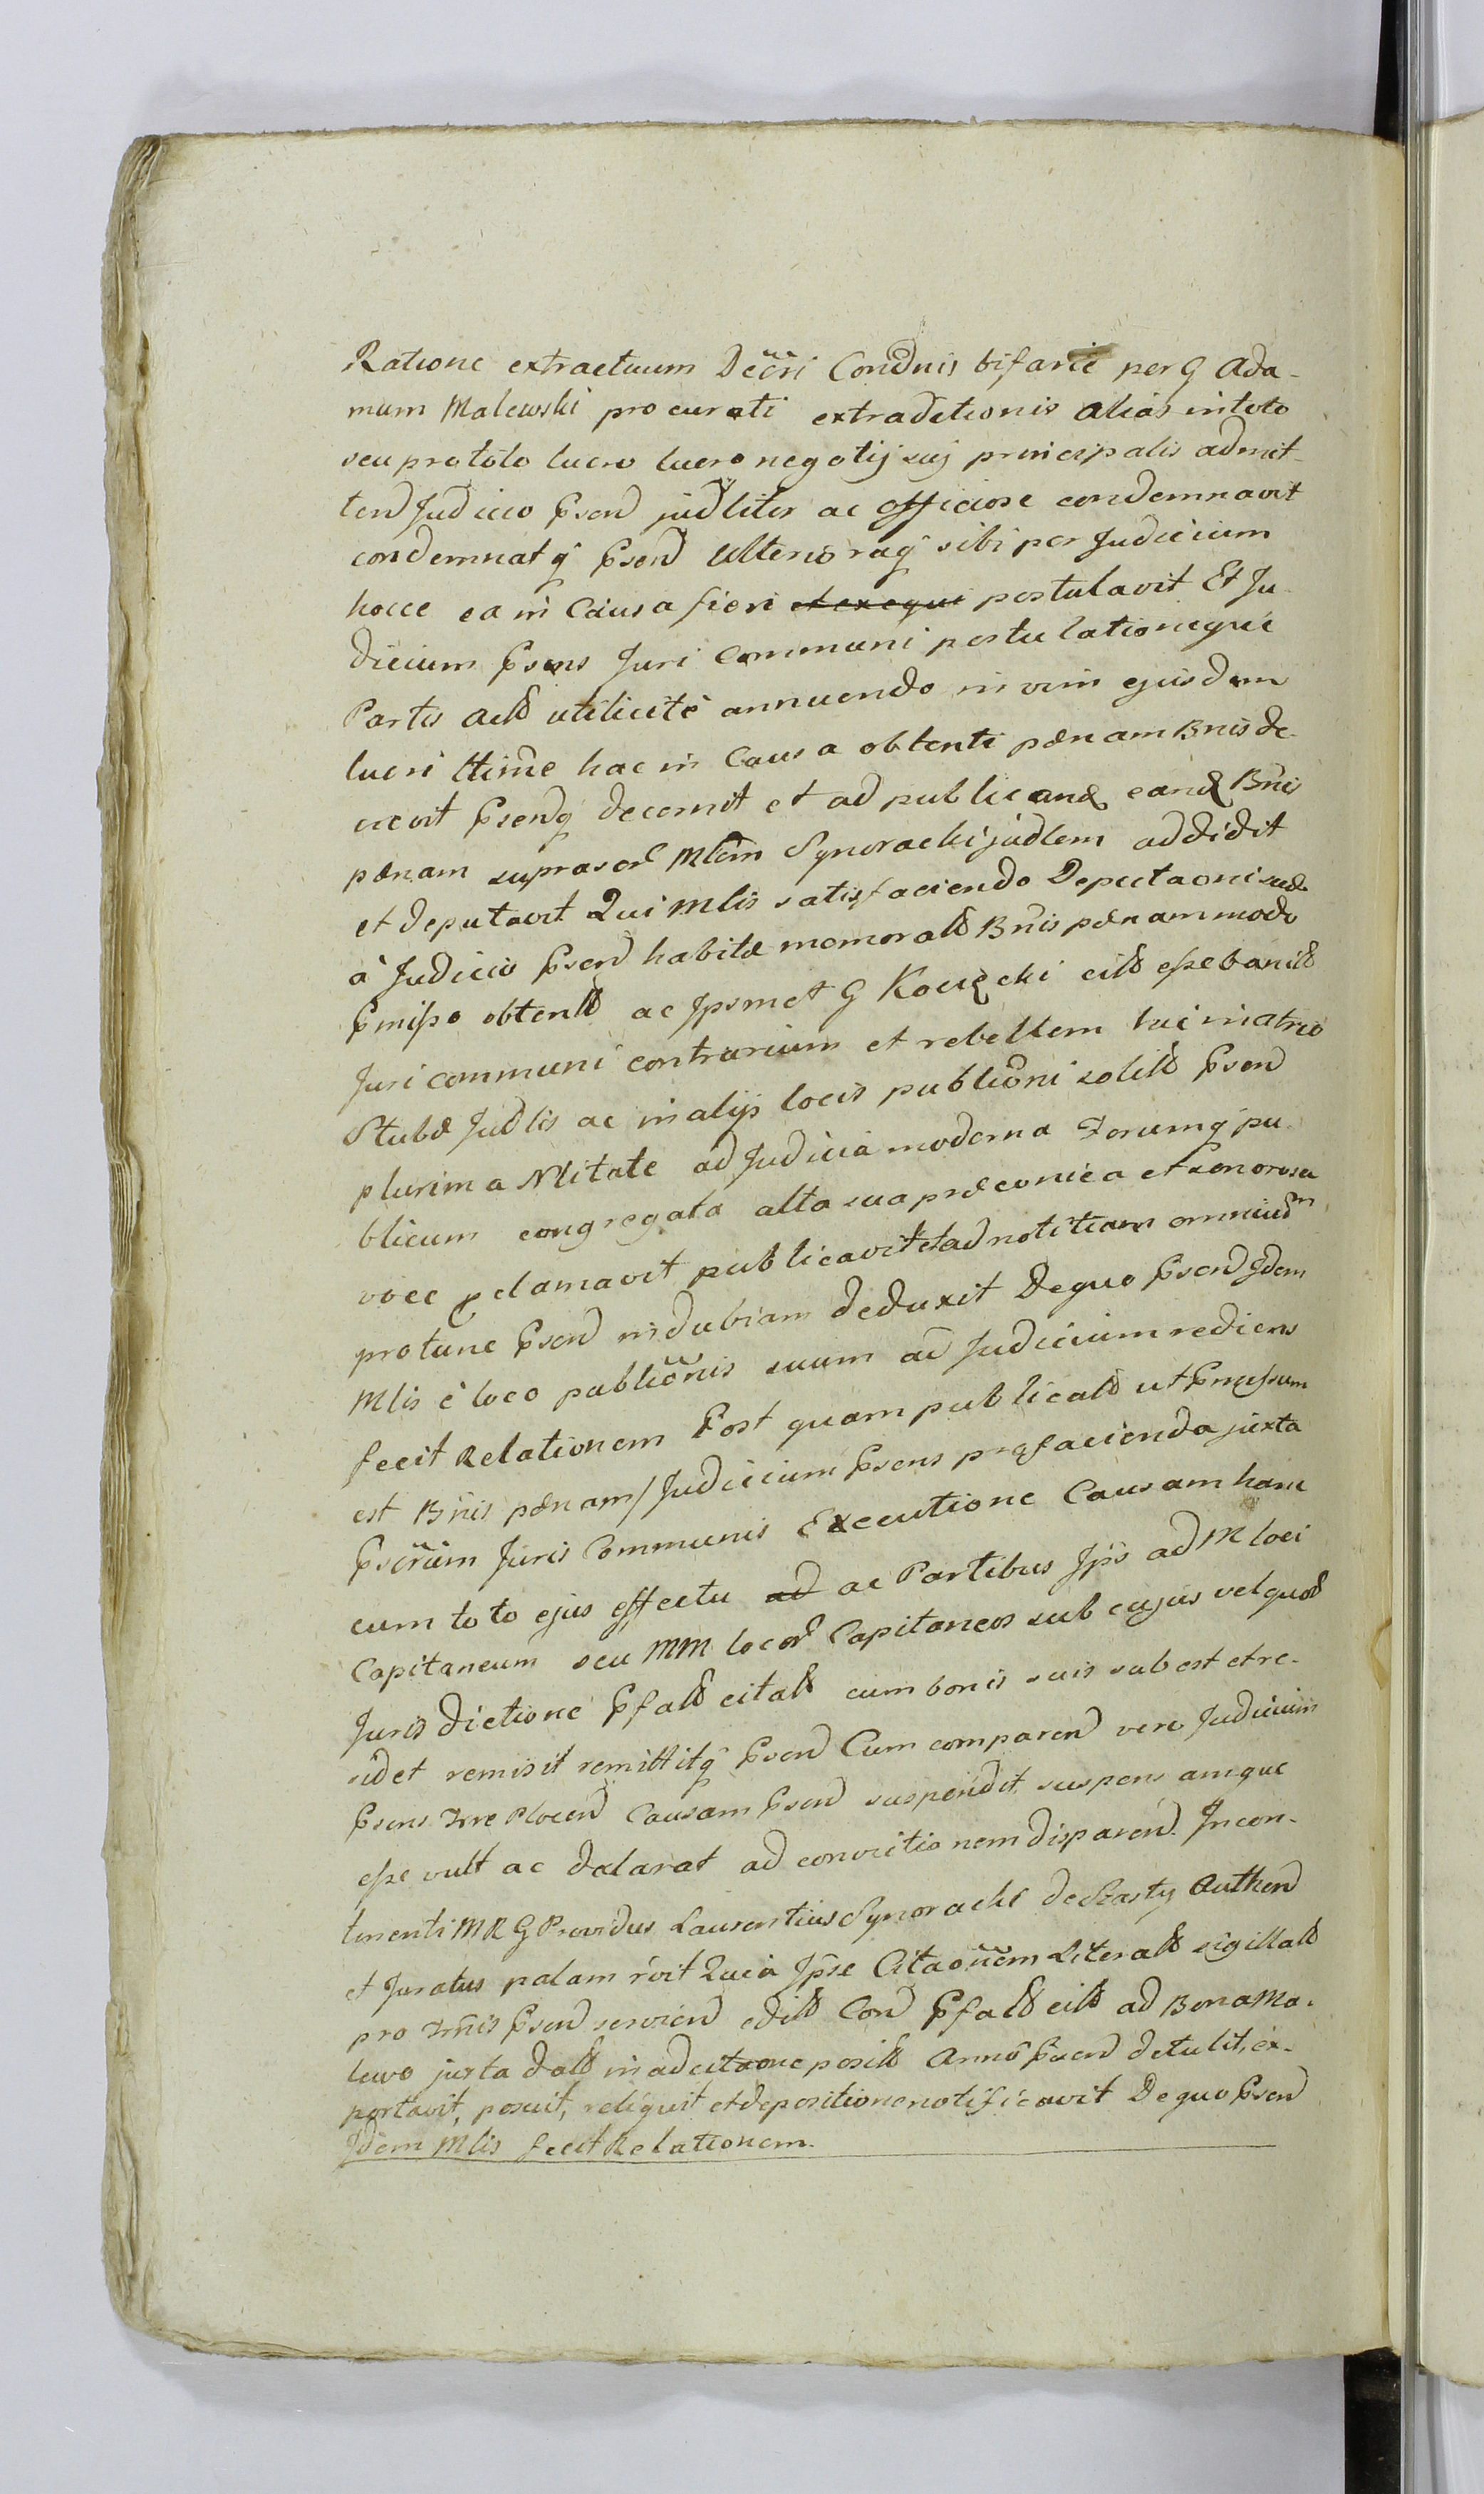 Ratione extractuum Decri Condnis bifarie per G Ada-
mum Malewski procurati extraditionis alias in toto
seu pro toto lucro lucro negotij sui principalis admit-
ten Judicio Psen judliter ac officiose condemnavit
condemnatq Psen Ulterioraq sibi per Judicium
hocce ea in Causa fieri et exequi postulavit Et Ju-
dicium Psens Juri Communi postulationique
Partis utilicite annuendo in vim ejusdem
lucri ttime hac in Causa obtenti pænam Bnis de-
crevit Psenq decernit et ad publicand eand Bnis
pænam suprascr Mlem Synoracki judlem addidit
et deputavit Qui Mlis satisfaciendo Deputaoni suæ
a Judicio Psen habitæ memorat Bnis pænam modo
Pmisso obtent ac Ipsmet G cit esse banit
Juri communi contrarium et rebellem hui in atrio
Stubæ Judlis ac in alijs locis publioni solit Psen
plurima Nlitate ad Judicia moderna Forumq pu-
blicum congregata alta sua præconica et sonorosa
voce pclamavit publicavit et ad notitiam omnium
protunc Psen indubiam deduxit Dequo Psen Idem
Mlis è loco publionis suum ad Judicium rediens
fecit Relationem Post quam publicat ut Pmissum
est Bnis pænam / Judicium Psens pro facienda juxta
Pscrium Juris Communis Executione Causam hanc
cum toto ejus effectu ad ac Partibus Jps ad M loci
Capitaneum seu MM locor Capitaneos sub cujus vel quor
Jurisdictione Pfat citat cum bonis suis subest et re-
sidet remisit remittitq Psen Cum comparen vero Judicium
Psens Trre Plocen Causam Psen suspendit suspensamque
esse vult ac dclarat ad convictionem disparen. Incon-
tinenti MRG Providus Laurentius Synoracki de Authen
et Juratus palam rvit Quia Ipse Citaonem Literat sigillat
pro Trnis Psen servien edit Con Pfat cit ad Bona Ma-
lewo juxta dat in adcitaone posit Anno Psen detulit, ex-
portavit, posuit, reliquit et de positione notificavit Dequo Psen
Idem Mlis fecit Relationem.